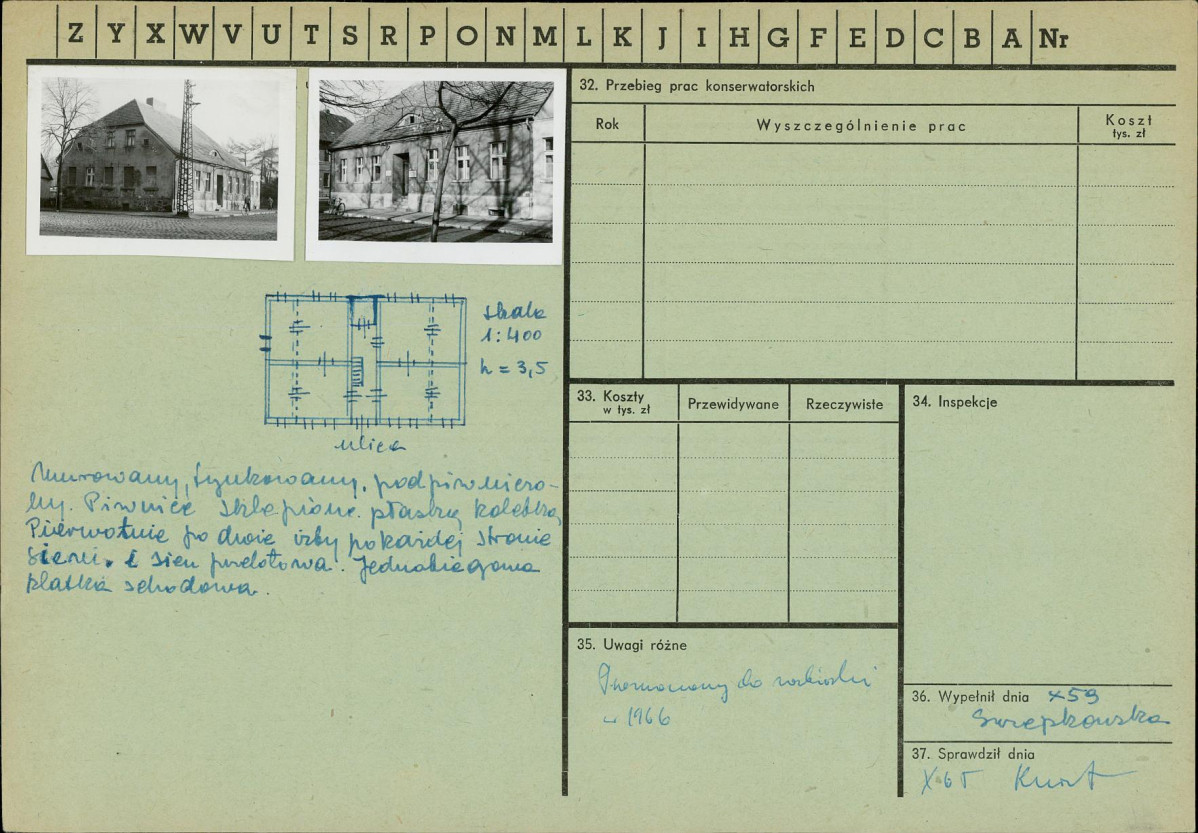 Z Y X W V U T S R P O N M L K J I H G F E D C B A Nr
skala
1:400
h = 3,5
ulica
Murowany, tynkowany, podpiwniczo-
ny. Piwnice sklepione płaską kolebką
Pierwotnie po dwie izby po każdej stronie
sieni. i sień przelotowa. Jednobiegowa
klatka schodowa.
32. Przebieg prac konserwatorskich
Rok
Wyszczególnienie prac
Koszt
tys. zł
33. Koszty
w tys. zł
Przewidywane
Rzeczywiste
34. Inspekcje
35. Uwagi różne
Przeznaczony do rozbiórki
w 1966
36. Wypełnił dnia X 59
37. Sprawdził dnia
X 65